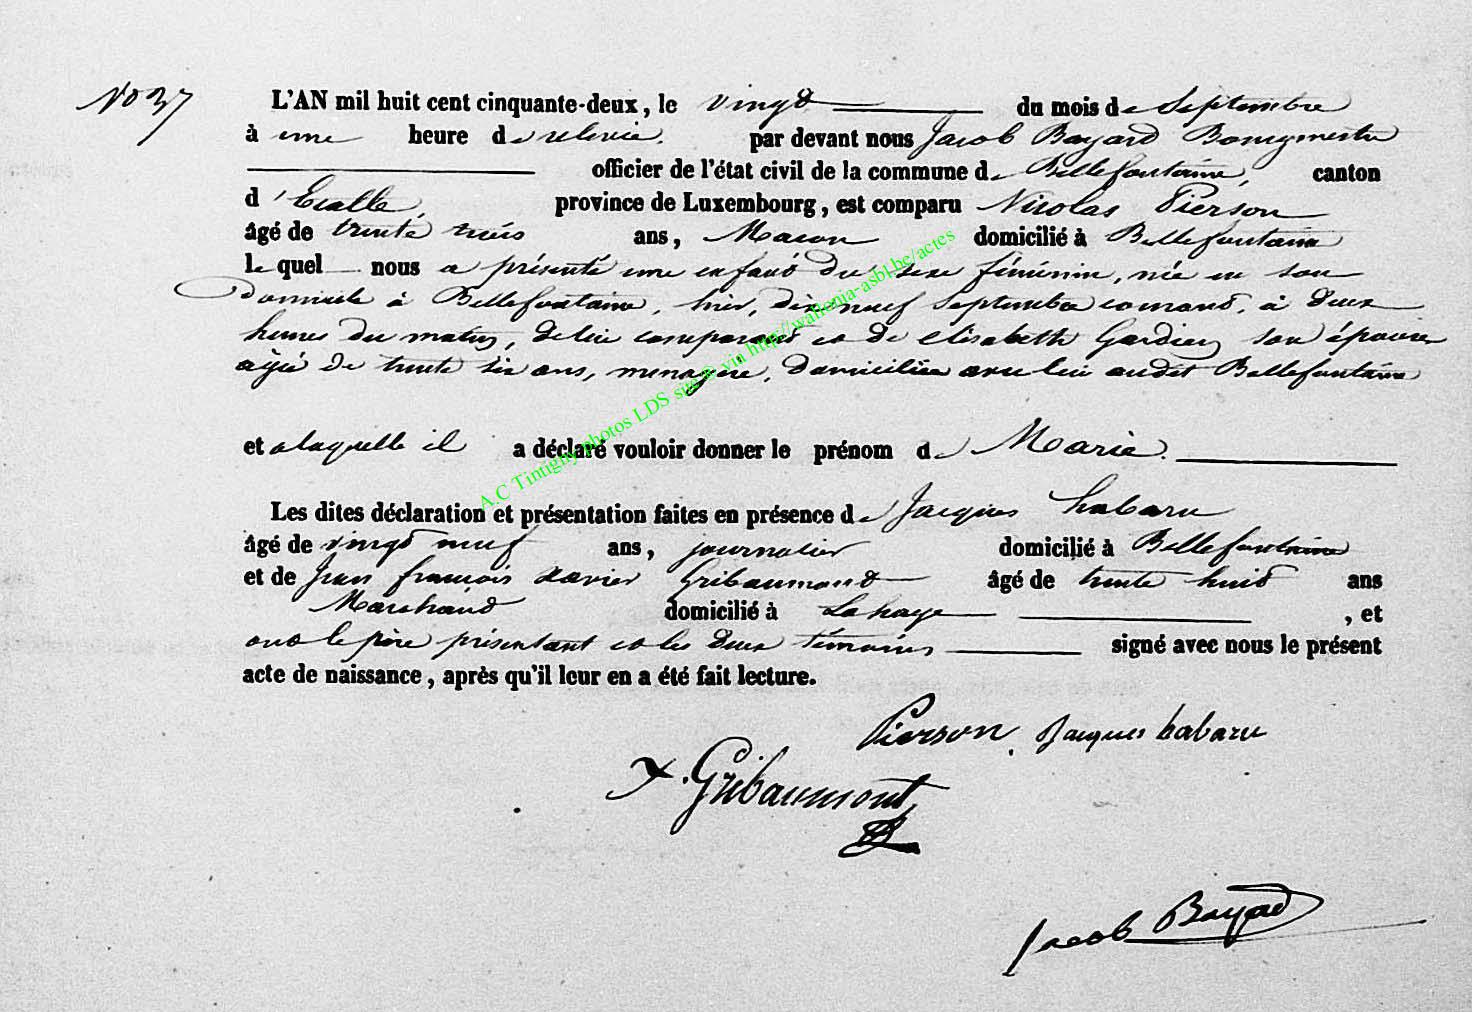 No 37
L'AN mil huit cent cinquante-deux, le vingt du mois de Septembre
à une heure de relevée. par devant nous Jacob Bayard Bourgmestre
officier de l'état civil de la commune de Bellefontaine, canton
d'Etalle, province de Luxembourg, est comparu Nicolas Pierson
âgé de trente trois ans, Macon domicilié à Bellefontaine
le quel nous a présenté une enfant du sexe féminin, née en son
domicile à Bellefontaine, hier, dix neuf Septembre courant, à deux
heures du matin, de lui comparant et de elisabeth Gardien son épouse
agée de trente six ans, menagère, domiciliée avec lui audit Bellefontaine
et a laquelle il a déclaré vouloir donner le prénom de Marie.
Les dites déclaration et présentation faites en présence de Jacques habaru
âgé de vingt neuf ans, journalier domicilié à Bellefontaine
et de Jean françois Xavier Gribaumont âgé de trente huit ans
Marchand domicilié à Lahage, et
ont le père présentant et les deux témoins signé avec nous le présent
acte de naissance, après qu'il leur en a été fait lecture.
Pierson. Jacques habaru
X. Gribaumont
Jacob Bayard
A.C Tintigny photos LDS site © via http://wallonia-asbl.be/actes